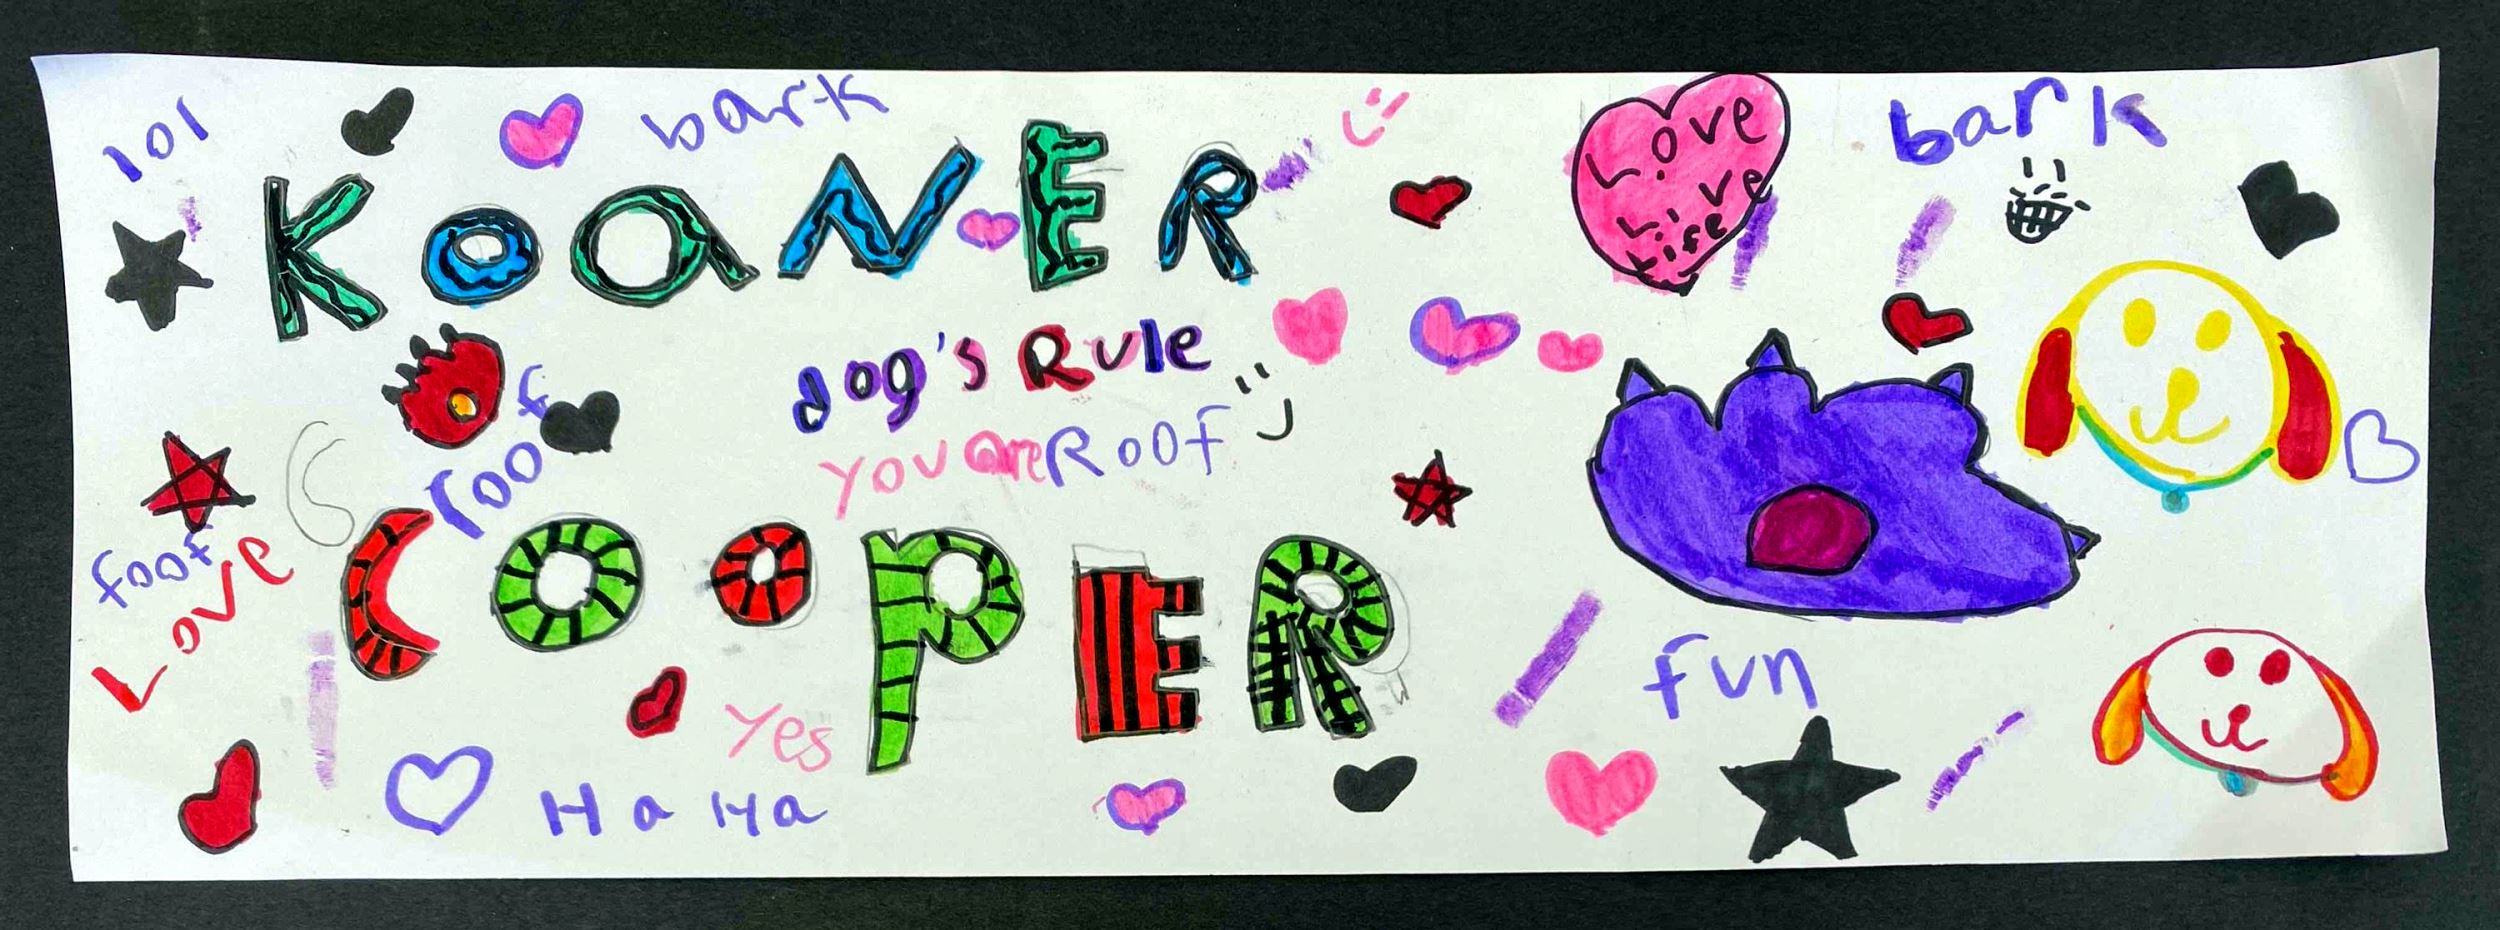 lol
bark
KOaNER
Love
Live
Life
bark
dog's RUlE
you are ROOF
roof
foof
Love
COOPER
Yes
Ha Ha
fun